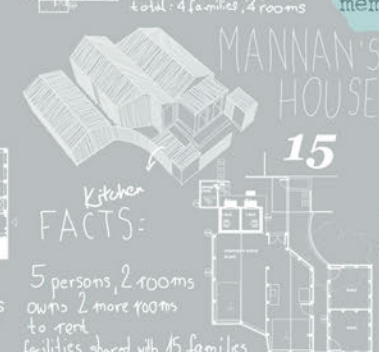 total: 4 families, 4 rooms
mem
MANNAN'S
HOUSE
15
Kitchen
FACTS:
5 persons, 2 rooms
owns 2 more rooms
to rent
facilities shared with 15 families